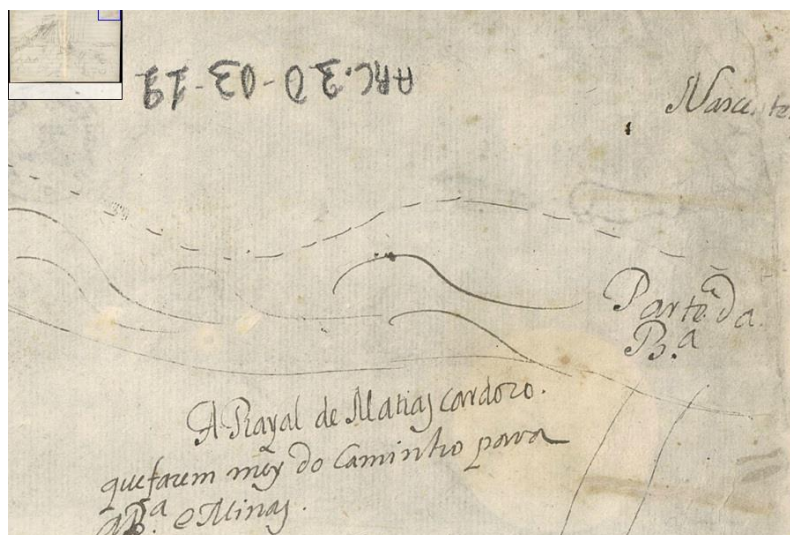 ARC.30-03-19
Nascente
Parte da
B.ª
A Rayal de Matias cardozo.
que fazem meyo do Caminho para
a B.ª e Minas.